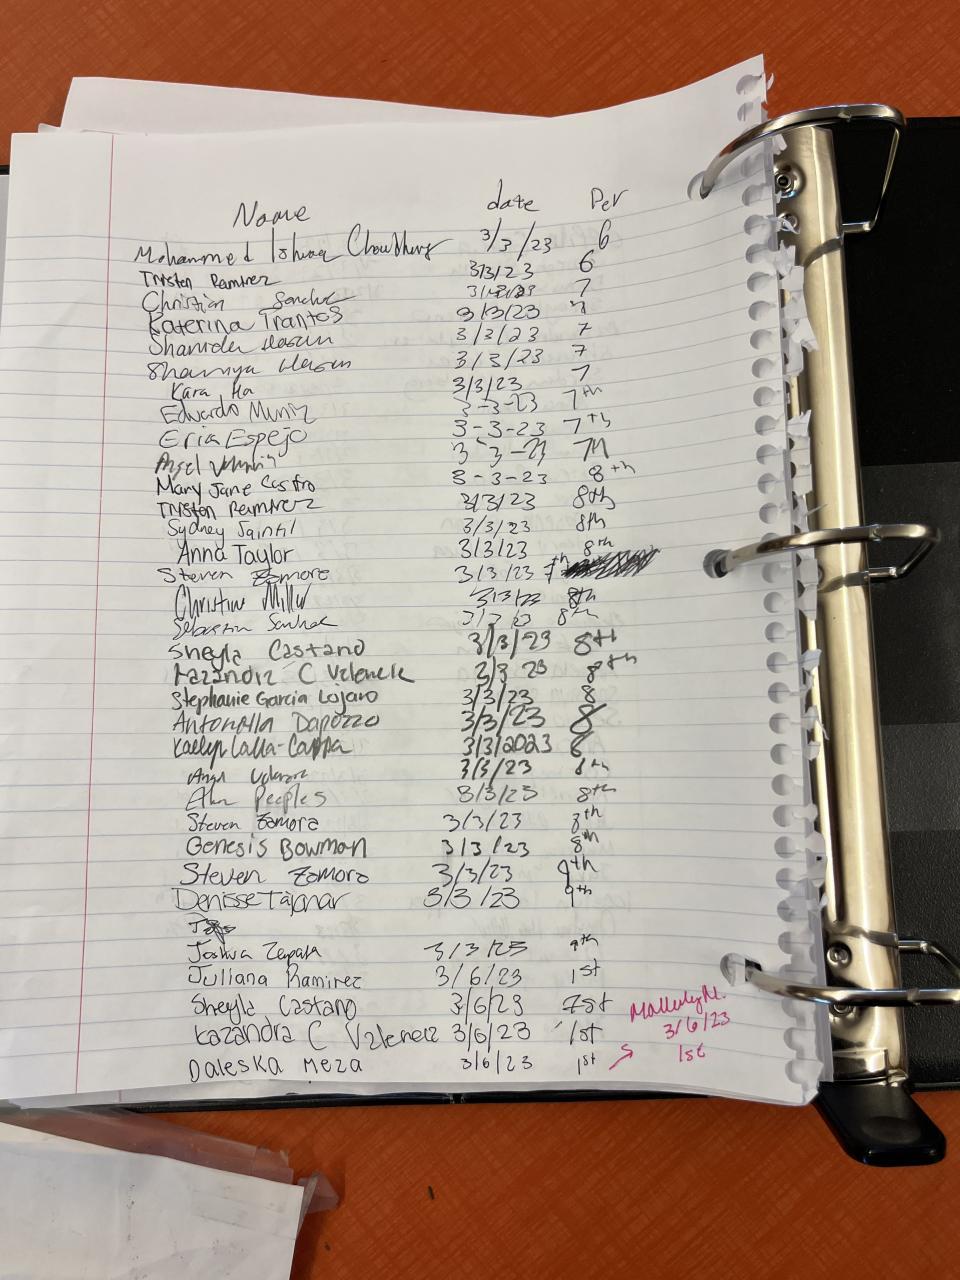 Name date Per
Mohammed Choudhury 3/3/23 6
Tristen Ramirez 3/3/23 6
Christian 7
Katerina Trantos 3/3/23 7
Shanida Hasun 3/3/23 7
Shamya Hasun 3/3/23 7
Kara Ha 3/3/23 7
Edwardo Muniz 3-3-23 7th
Eria Espejo 3-3-23 7th
Angel 3-3-23 7th
Mary Jane Castro 3-3-23 8th
Tristen Ramirez 3/3/23 8th
Sydney Saintil 3/3/23 8th
Anna Taylor 3/3/23 8th
Steven Zamora 3/3/23 7th
Christine Miller 3/3/23 8th
Sebastin 3/3/23 8th
Sheyla Castano 3/3/23 8th
Kazandra C Valencia 3/3 23 8th
Stephanie Garcia Lojano 3/3/23 8
Antonella Dapozzo 3/3/23 8
Kaelyn Lalla-Cappa 3/3/2023 8
Angel 3/3/23 8th
Peeples 3/3/23 8th
Steven Zamora 3/3/23 8th
Genesis Bowman 3/3/23 8th
Steven Zamora 3/3/23 9th
Denisse Tajonar 3/3/23 9th
Joshua Zapata 3/3/23 9th
Juliana Ramirez 3/6/23 1st
Sheyla Castano 3/6/23 1st
Kazandra C Valencia 3/6/23 1st
Daleska Meza 3/6/23 1st
M.
3/6/23
1st